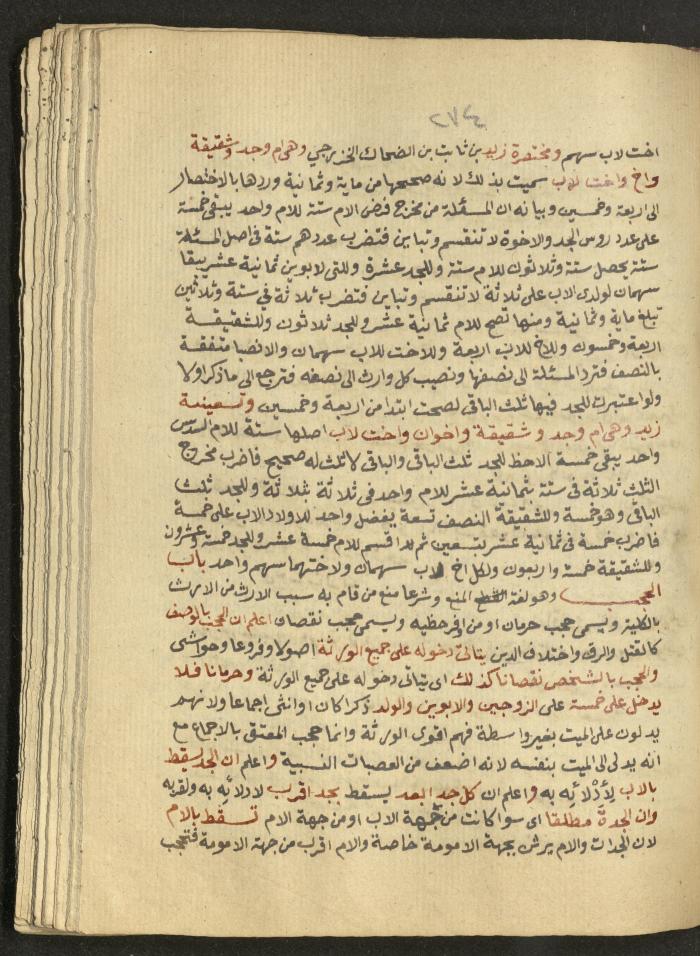 ٢٧٤
اخت لاب سهم ومختصرة زيد بن ثابت بن الضحاك الخزرجي وهي ام وجد وشقيقة
واخ واخت لاب سميت بذلك لانه صححها من ماية وثمانية وردها بالاختصار
الى اربعة وخمسين وبيانه ان المسئلة من مخرج فرض الام ستة للام واحد يبقى خمسة
على عدد روس الجد والاخوة لا تنقسم وتباين فتضرب عددهم ستة في اصل المسئلة
ستة يحصل ستة وثلاثون للام ستة وللجد عشرة وللتي لابوين ثمانية عشر يبقا
سهمان لولدي الاب على ثلاثة لا تنقسم وتباين فتضرب ثلاثة في ستة وثلاثين
تبلغ ماية وثمانية ومنها تصح للام ثمانية عشر وللجد ثلاثون وللشقيقة
اربعة وخمسون وللاخ للاب اربعة وللاخت للاب سهمان والانصبا متفقة
بالنصف فترد المسئلة الى نصفها ونصيب كل وارث الى نصفه فترجع الى ما ذكر اولا
ولو اعتبرت للجد فيها ثلث الباقي لصحت ابتدا من اربعة وخمسين وتسعينية
زيد وهي ام وجد وشقيقة واخوان واخت لاب اصلها ستة للام السدس
واحد يبقى خمسة الاحظ للجد ثلث الباقي والباقي لا ثلث له صحيح فاضرب مخرج
الثلث ثلاثة في ستة بثمانية عشر للام واحد في ثلاثة بثلاثة وللجد ثلث
الباقي وهو خمسة وللشقيقة النصف تسعة يفضل واحد للاولاد الاب على خمسة
فاضرب خمسة في ثمانية عشر بتسعين ثم اقسم للام خمسة عشر وللجد خمسة وعشرون
وللشقيقة خمسة واربعون ولكل اخ لاب سهمان ولاختهما سهم واحد باب
الحجب وهو لغة المنع وشرعا منع من قام به سبب الارث من الارث
بالكلية ويسمى حجب حرمان او من اوفر حظيه ويسمى حجب نقصان اعلم ان الحجب بالوصف
كالقتل والرق واختلاف الدين يتاتى دخوله على جميع الورثة اصولا وفروعا وحواشى
والحجب بالشخص نقصانا كذلك اى يتاتى دخوله على جميع الورثة وحرمانا فلا
يدخل على خمسة على الزوجين والابوين والولد ذكرا كان او انثى اجماعا ولانهم
يدلون على الميت بغير واسطة فهم اقوى الورثة وانما حجب المعتق بالاجماع مع
انه يدلى الى الميت بنفسه لانه اضعف من العصبات النسبية واعلم ان الجد يسقط
بالاب لادلائه به واعلم ان كل جد ابعد يسقط بجد اقرب لادلائه به ولقربه
وان الجدة مطلقا اى سوا كانت من جهة الاب او من جهة الام تسقط بالام
لان الجدات والام يرثن بجهة الامومة خاصة والام اقرب من جهة الامومة فتحجب